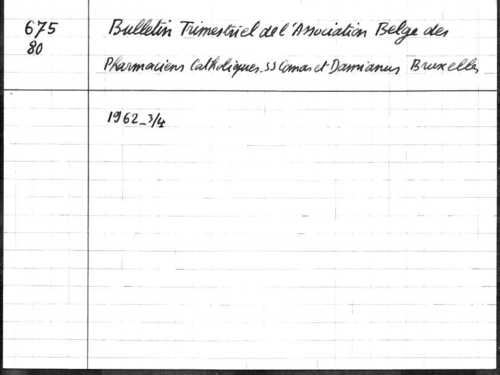 675 Bulletin Trimestriel de l'Association Belge des
80 Pharmaciens Catholiques. SS Comas et Damianus Bruxelles
1962-3/4